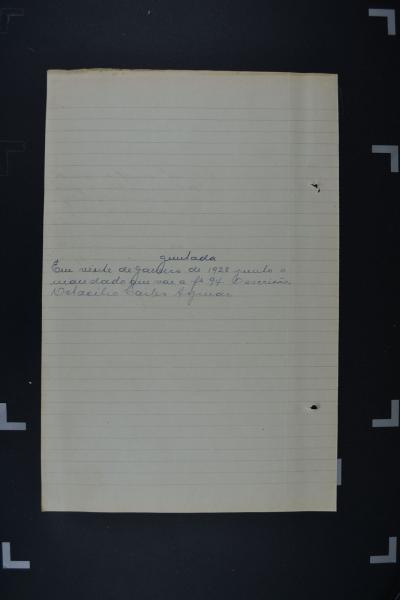 Juntada
Em vinte de Janeiro de 1928 junto o
mandado que vai a fs 94. O escrivão,
Octacilio Castro Aguiar